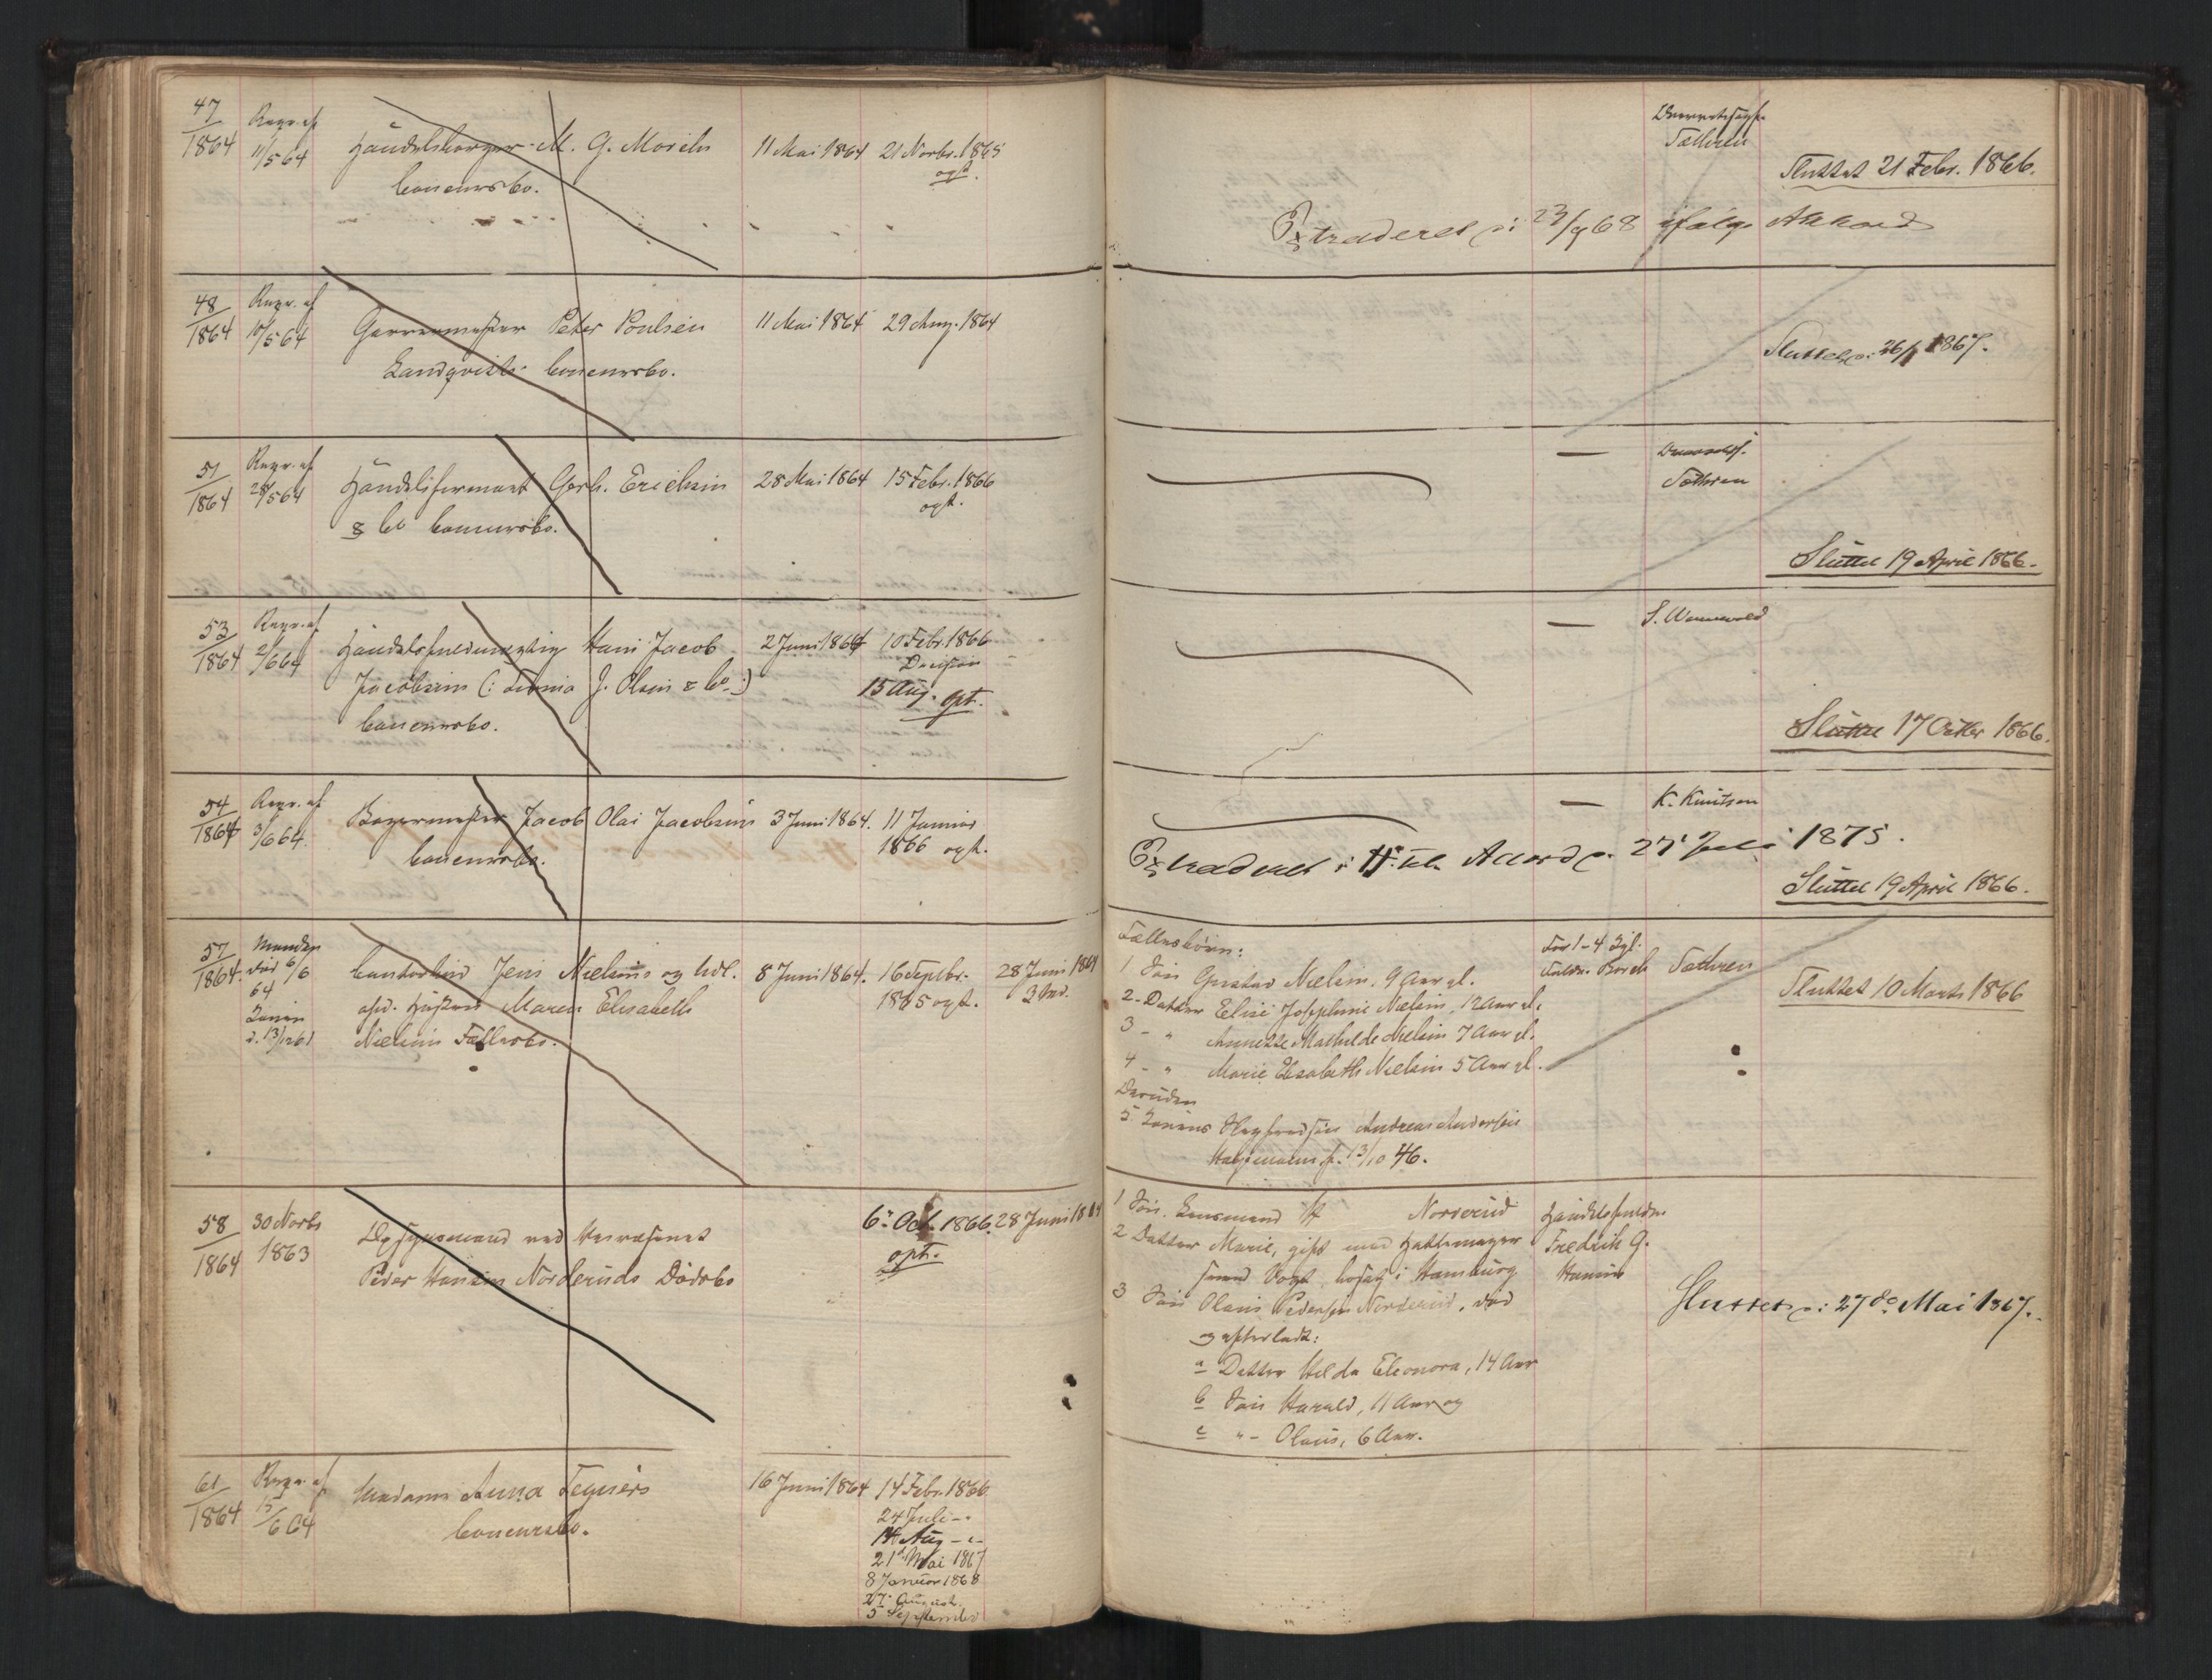 47
1864
Reqv. af
11/5 64
Handelsborger M. G. Moriehs
Concursbo.
11 Mai 1864
21 Novbr. 1865
opt.
Sæthren
Sluttet 21 Febr. 1866.
Extraderet p: 23/9 68 ifølge Akkord
48
1864
Reqv. af
10/5 64
Garvermester Peter Poulsen
Landqvists Concursbo.
11 Mai 1864
29 Aug. 1864
Sluttet p: 26/1 1867.
51
1864
Reqv. af
28/5 64
Handelsfirmaet Gerh. Erichsen
& Co Concursbo.
28 Mai 1864
15 Febr. 1866
opt.
—
Sæthren
Sluttet 19 April 1866.
53
1864
Reqv. af
2/6 64
Handelsfuldmægtig Hans Jacob
Jacobsens (: Firma J. Olsen & Co :)
Concursbo.
2 Juni 1864
10 Febr. 1866
Decision
15 Aug. opt.
—
Sluttet 17 Octbr 1866.
54
1864
Reqv. af
3/6 64.
Bagermester Jacob Olai Jacobsens
Concursbo.
3 Juni 1864.
11 Januar
1866 opt.
—
K. Knutsen
Extraderet Akkord p. 27 Juli 1875.
Sluttet 19 April 1866.
57
1864.
Manden
død 6/6
64
Konen
d. 13/12 61
Contorbud Jens Nielsens og tidl.
afd. Hustru Maren Elisabeth
Nielsens Fællesbo.
8 Juni 1864.
16 Septbr.
1865 opt.
28 Juni 1864
Fællesbørn:
1 Søn Gustav Nielsen, 9 Aar gl.
2 - Datter Elise Josephine Nielsen, 12 Aar gl.
3 - " Annette Mathilde Nielsen 7 Aar gl.
4 - " Marie Elisabeth Nielsen 5 Aar gl.
Desuden
5 Konens Andreas Andersen
f. 13/10 46.
For 1-4
Sæthren
Sluttet 10 Marts 1866
58
1864
30 Novbr
1863
Opsynsmand ved
Peder Hansen Norderuds Dødsbo
6. Oct. 1866.
opt.
28 Juni 1864
1 Søn. Lensmand H Norderud
2 Datter Marie, gift med Hattemager
Vogt, bosat i Hamburg
3 Søn Olaus Pedersen Norderud, død
og efterladt:
a Datter Hilda Eleonora, 14 Aar
b Søn Harald, 11 Aar og
c " - Olaus, 6 Aar.
Handelsfuldm.
Fredrik G.
Hansen
Sluttet p: 27de Mai 1867.
61
1864
Reqv. af
15/6 64
Madame Anna Tegnérs
Concursbo.
16 Juni 1864
14 Febr. 1866
24 Juli - "
14 Aug - "-
21 Mai 1867
8 Januar 1868
27 August.
5 September